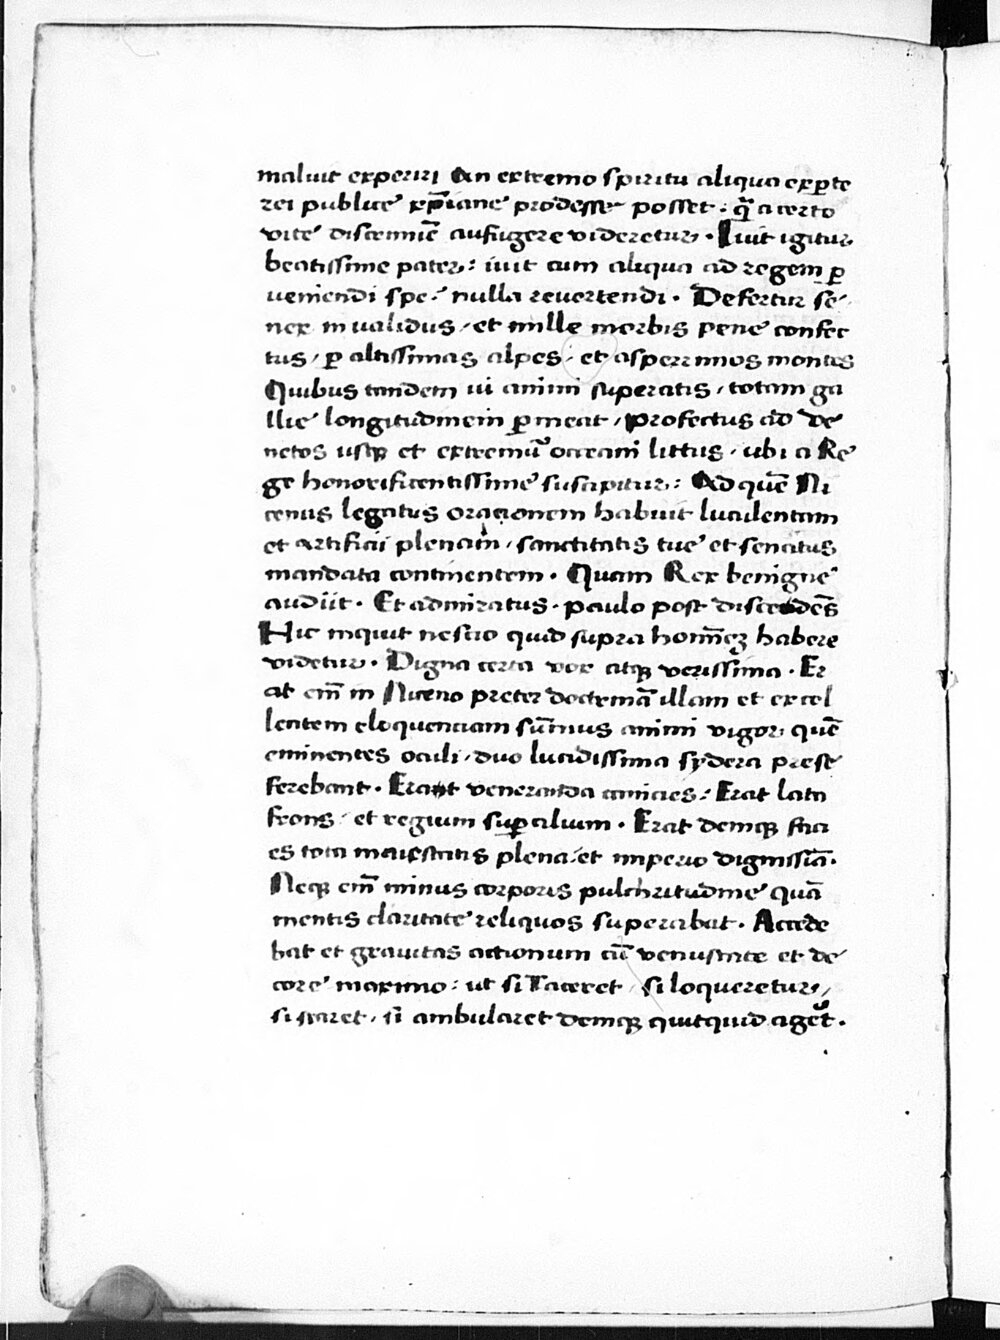 maluit experiri An extremo spiritu aliqua ex p̱te
rei publice xp̄iane prodesse posset · q̄ a certo
vite discrimīe aufugere videretur · Iuit igitur
beatissime pater : iuit cum aliqua ad regem ꝑ
ueniendi spe · nulla revertendi · Defertur se-
nex in validus / et mille morbis pene confec
tus / ꝑ altissimas alpes / et asperrimos montes
Quibus tandem ui animi superatis / totam ga
llie longitudinem ꝑmeat / profectus ad ve
netos usqꝫ et extremū occeani littus / ubi a Re
ge honorificentissime suscipitur : Ad quē Ni
cenus legatus orationem habuit luculentam
et artificii plenam / sanctitatis tue et senatus
mandata continentem · Quam Rex benigne
audiit · Et admiratus · paulo post discedēs
Hic inquit nescio quid supra homīeꝫ habere
videtur · Digna certa vox atqꝫ verissima · Er
at em̄ in Niceno preter doctrinā illam et excel
lentem eloquenciam sūmus animi vigor quē
eminentes oculi / duo lucidissima sydera prese
ferebant · Erat veneranda canicies : Erat lata
frons / et regium suꝑcilium · Erat deniqꝫ faci
es tota maiestatis plena / et imperio dignissīa ·
Neqꝫ em̄ minus corporis pulchritudine quā
mentis claritate reliquos superabat · Accede
bat et gravitas actionum cū venustate et de-
core maximo : ut si taceret / si loqueretur /
si staret / si ambularet deniqꝫ quitquid ageret ·